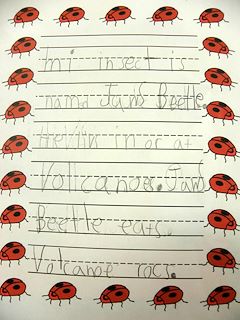 mi insect is
nam Jum's Beetle.
He lin in or at
Volcanoe. Jam's
Beetle eats.
Volcanoe rocs.